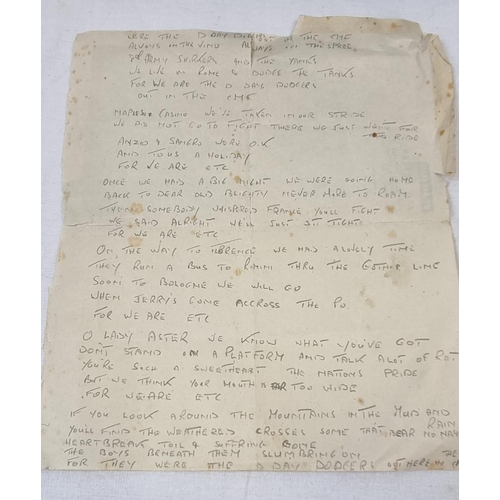 WERE THE D DAY DODGERS OUT IN THE CMF
ALWAYS ON THE VINO ALWAYS ON THE SPREE
8TH ARMY SHIRKERS AND THE YANKS
WE LIVE IN ROME & DODGE THE TANKS
FOR WE ARE THE D DAY DODGERS
OUT IN THE CMF
& CASINO WE'VE TAKEN IN OUR STRIDE
WE DID NOT GO TO FIGHT THERE WE JUST WENT FOR
THE RIDE
ANZIO & SANGRO WERE O.K
AND TO US A HOLIDAY
FOR WE ARE ETC
ONCE WE HAD A BIG NIGHT WE WERE GOING HOME
BACK TO DEAR OLD BLIGHTY NEVER MORE TO ROAM
THEN SOMEBODY WHISPERED FRANCE YOU'LL FIGHT
WE SAID ALRIGHT WE'LL JUST SIT TIGHT
FOR WE ARE ETC
ON THE WAY TO FLORENCE WE HAD A LOVELY TIME
THEY RUN A BUS TO RIMINI THRU THE GOTHIC LINE
SOON TO BOLOGNE WE WILL GO
WHEN JERRY'S GONE ACCROSS THE PO
FOR WE ARE ETC
O LADY ASTER WE KNOW WHAT YOU'VE GOT
DON'T STAND ON A PLATFORM AND TALK A LOT OF ROT
YOU'RE SUCH A SWEETHEART THE NATIONS PRIDE
BUT WE THINK YOUR MOUTH FAR TOO WIDE
FOR WE ARE ETC
IF YOU LOOK AROUND THE MOUNTAINS IN THE MUD AND
RAIN
YOU'LL FIND THE WEATHERED CROSSES SOME THAT BEAR NO NAM
HEARTBREAK TOIL & SUFFRING GONE
THE BOYS BENEATH THEM SLUMBRING ON
FOR THEY WERE THE D DAY DODGERS OUT HERE IN